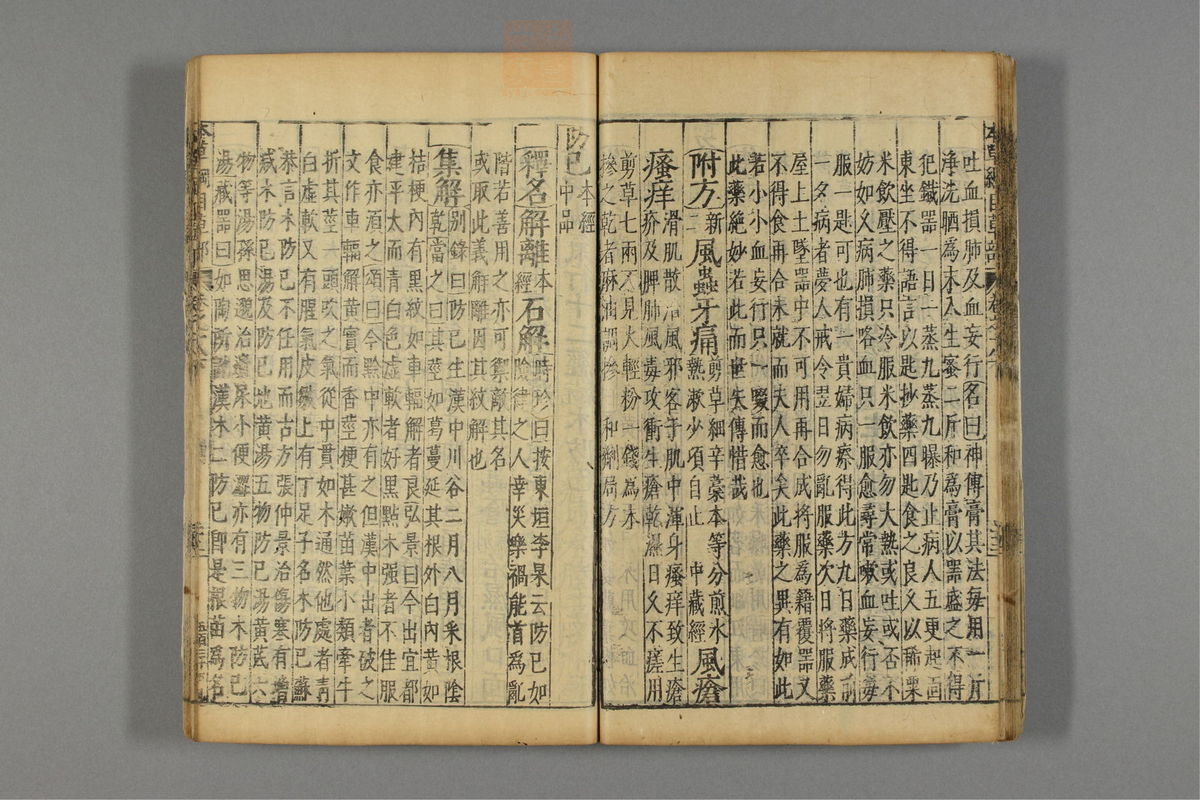 吐血損肺及血妄行名曰神傳膏其法每用一斤
净洗晒為末入生蜜二斤和為膏以器盛之不得
犯鐵器一日一蒸九蒸九曝乃止病人五更起面
東坐不得語言以匙抄藥四匙食之良久以稀粟
米飲壓之藥只冷服米飲亦勿大熱或吐或否不
妨如久病肺損咯血只一服愈尋常嗽血妄行每
服一匙可也有一貴婦病瘵得此方九日藥成前
一夕病者夢人戒令翌日勿亂服藥次日將服藥
屋上土墜器中不可用再合成將服為籍覆器又
不得食再合未就而夫人卒矣此藥之異有如此
若小小血妄行只一啜而愈也
此藥絶妙若此而世失傳惜哉
附方新二風蟲牙痛剪草細辛藁本等分煎水熱漱少頃自止 中藏經風瘡
瘙痒滑肌散治風邪客于肌中渾身瘙痒致生瘡疥及脾肺風毒攻衝生瘡乾濕日久不瘥用
剪草七兩不見火輕粉一錢為末
摻之乾者麻油調摻 和劑局方
防己本經中品
釋名解離本經石解時珍曰按東垣李杲云防己如險健之人幸災樂禍能首為亂
階若善用之亦可禦敵其名
或取此義解離因其紋解也
集解别錄曰防己生漢中川谷二月八月采根陰乾當之曰其莖如葛蔓延其根外白內黃如
桔梗內有黑紋如車輻解者良弘景曰今出宜都
建平大而青白色虛軟者好黑點木强者不佳服
食亦須之頌曰今黔中亦有之但漢中出者破之
文作車輻解黃實而香莖梗甚嫩苗葉小類牽牛
折其莖一頭吹之氣從中貫如木通然他處者青
白虛軟又有腥氣皮皺上有丁足子名木防己蘇
恭言木防己不任用而古方張仲景治傷寒有增
减木防己湯及防己地黃湯五物防己湯黃芪六
物等湯孫思邈治遺尿小便澀亦有三物木防己
湯藏器曰如陶所説漢木二防己即是根苗為名